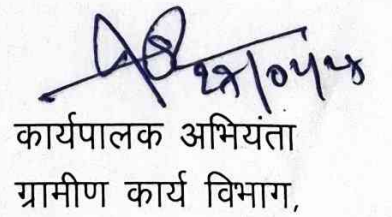 कार्यपालक अभियंता
ग्रामीण कार्य विभाग,